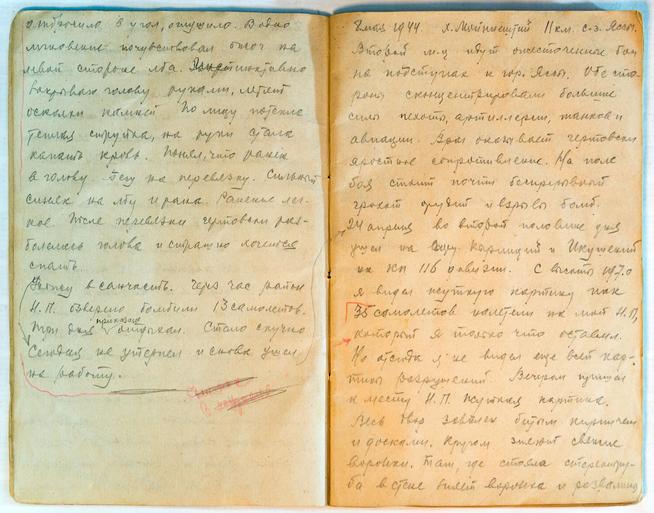 отбросило в угол, оглушило. В одно
мгновение почувствовал ожог на
левой стороне лба. Инстинктивно
закрываю голову руками, летят
осколки камней. По лицу потекла
теплая струйка, на руки стала
капать кровь. Понял, что ранен
в голову. Бегу на перевязку. Сильный
синяк на лбу и рана. Ранение лег-
кое. После перевязки чертовски раз-
болелась голова и страшно хочется
спать.
в санчасть. Через час район
Н.П. озверело бомбили 13 самолетов.
Три дня отдыхал. Стало скучно
приказано
Сегодня не утерпел и снова ушел
на работу.
8 мая 1944 х. 11 км. с.з. Яссы.
Второй м-ц идут ожесточенные бои
на подступах к гор. Яссы. Обе сто-
роны сконцентрировали большие
силы пехоты, артиллерии, танков и
авиации. Враг оказывает чертовски
яростное сопротивление. На поле
боя стоит почти беспрерывный
грохот орудий и взрывы бомб.
24 апреля во второй половине дня
ушел на и
на КП 116 дивизии. С высоты 197.0
я видел жуткую картину как
38 самолетов налетели на мой Н.П,
который я только что оставил.
Но отсюда я не видел еще всей кар-
тины разрушений. Вечером пришел
к месту Н.П. жуткая картина.
Весь двор завален битым кирпичем
и досками. Кругом зияют свежие
воронки. Там, где стояла стереотру-
ба в стене зияет воронка и